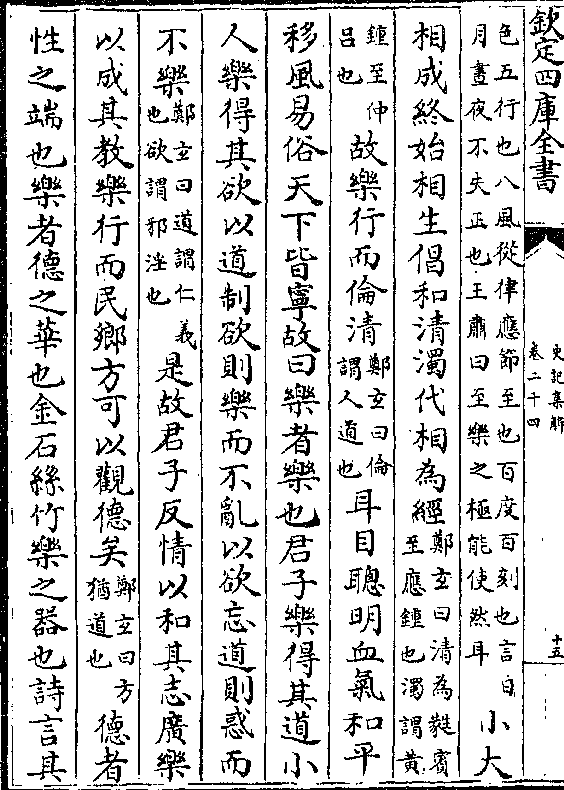 欽定四庫全書
史記集解
卷二十四
十五
色五行也八風從律應節至也百度百刻也言日
月晝夜不失正也王肅曰至樂之極能使然耳
小大
相成終始相生倡和清濁代相為經
鄭玄曰清為蕤賓
至應鍾也濁謂黃
鍾至仲
呂也
故樂行而倫清
鄭玄曰倫
謂人道也
耳目聰明血氣和平
移風易俗天下皆寧故曰樂者樂也君子樂得其道小
人樂得其欲以道制欲則樂而不亂以欲忘道則惑而
不樂
鄭玄曰道謂仁義
也欲謂邪淫也
是故君子反情以和其志廣樂
以成其教樂行而民鄉方可以觀德矣
鄭玄曰方
猶道也
德者
性之端也樂者德之華也金石絲竹樂之器也詩言其